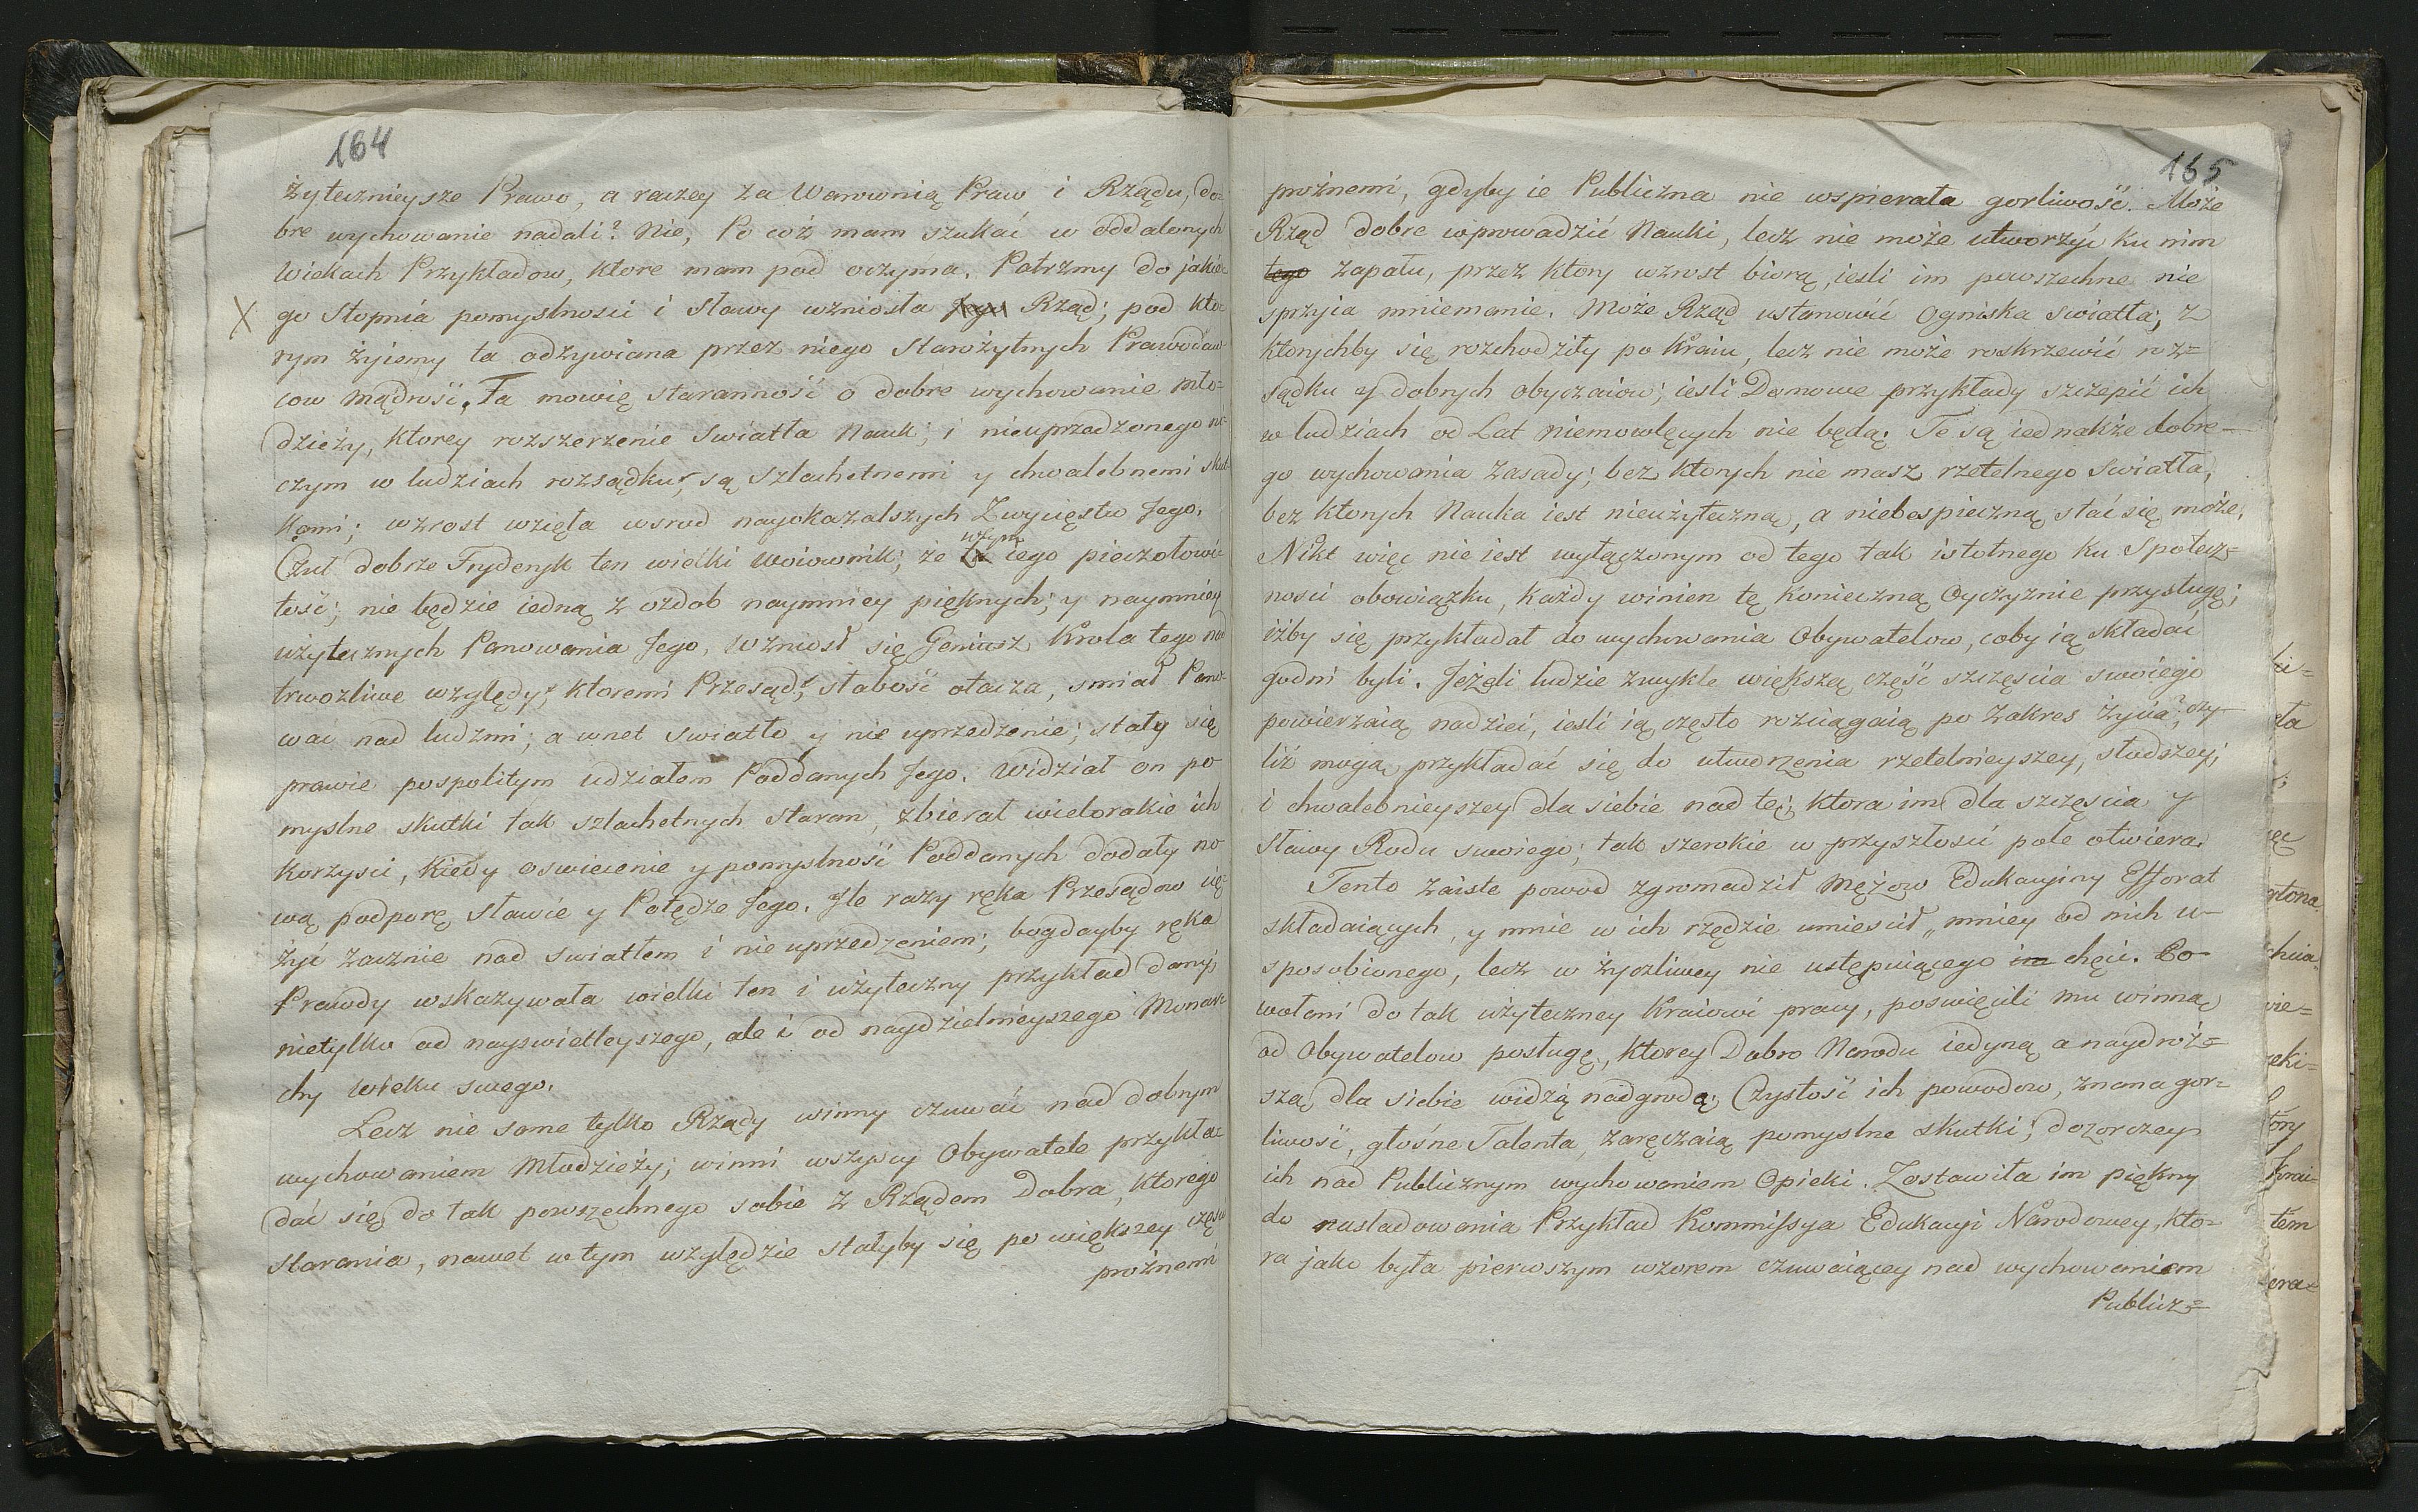 164
żytecznieysze Prawo, a raczey za Warownią Praw i Rządu, do=
bre wychowanie nadali? Nie, Po cóż mam szukać w oddalonych
Wiekach Przykładow, ktore mam pod oczyma. Patrzmy do jakie=
X go Stopnia pomyslnosci i Sławy wzniosła Rząd; pod kto=
rym żyiemy ta odżywiana przez niego Starożytnych Prawodaw=
cow Mądrość. Ta mowię staranność o dobre wychowanie Mło=
dzieży, ktorey rozszerzenie Swiatła Nauk; i nieuprzedzonego ni=
czym w ludziach rozsądku, są Szlachetnemi y chwalebnemi skut=
kami; wzrost wzięła wsrod nayokazalszych Zwycięstw Jego.
wzym
Czuł dobrze Fryderyk ten wielki Woiownik; że iego pieczołowi=
tość; nie będzie iedną z ozdob naymniey pięknych; y naymniey
użytecznych Panowania Jego. Wzniosł się Geniusz Krola tego nad
trwozliwe względy; ktoremi Przesąd; słabość otacza, smiał Pano=
wać nad ludzmi; a wnet swiatło y nie uprzedzenie; stały się
prawie pospolitym udziałem Poddanych Jego. Widział on po=
myslne skutki tak szlachetnych staran, zbierał wielorakie ich
korzysci, kiedy oswiecenie y pomyslność Poddanych dodały no=
wą podporę Sławie y Potędze Jego. Ile razy ręka Przesądow cię=
żyć zacznie nad swiatłem i nie uprzedzeniem; bogdayby ręka
Prawdy wskazywała wielki ten i użyteczny przykład dany;
nietylko od nayswietleyszego, ale i od naydzielnieyszego Monar=
chy Wieku swego.
Lecz nie same tylko Rządy winny czuwać nad dobrym
wychowaniem Młodzieży; winni wszyscy Obywatele przykła=
dać się do tak powszechnego sobie z Rządem Dobra, ktorego
starania, nawet w tym względzie stałyby się po większey częsci
próżnemi
165
próżnemi, gdyby ie Publiczna nie wspierała gorliwość. Może
Rząd dobre wprowadzić Nauki, lecz nie może utworzyć ku nim
tego zapału, przez ktory wzrost biorą, iesli im powszechne nie
sprzyia mniemanie. Może Rząd ustanowić Ogniska Swiatła; z
ktorychby się rozchodziły po Kraiu, lecz nie może roskrzewić roz=
sądku y dobrych obyczaiow; iesli Domowe przykłady szczepić ich
w ludziach od Lat niemowlęcych nie będą. Te są iednakże dobre=
go wychowania zasady; bez ktorych nie masz rzetelnego Swiatła,
bez ktorych Nauka iest nieużyteczną, a niebespieczną stać się może.
Nikt więc nie iest wyłączonym od tego tak istotnego ku Społecz=
nosci obowiązku, każdy winien tę konieczną Oyczyznie przysługę;
iżby się przykładał do wychowania Obywatelow, coby ią składać
godni byli. Jeżeli ludzie zwykle większą część szczęscia swoiego
powierzaią nadziei, iesli ią często rozciągaią po zakres życia?, czy=
liż mogą przykładać się do utwierdzenia rzetelnieyszey, słodszey;
i chwalebnieyszey dla siebie nad tę; ktora im dla szczęscia y
Sławy Rodu swoiego; tak szerokie w przyszłosci pole otwiera.
Tento zaiste powod zgromadził Mężow Edukacyiny Efforat
składaiących, y mnie w ich rzędzie umiescił „ mniey od nich u=
sposobionego, lecz w życzliwey nie ustępuiącego im chęci. Po=
wołani do tak użyteczney Kraiowi pracy, poswięcili mu winną
od Obywatelow posługę, ktorey Dobro Narodu iedyną a naydroż=
szą dla siebie widzą nadgrodą; Czystość ich powodow, znana gor=
liwość, głośne Talenta, zaręczaią pomyslne skutki; dozorczey
ich nad Publicznym wychowaniem Opieki. Zostawiła im piękny
do nasladowania Przykład Kommissya Edukacyi Narodowey, kto=
ra jako była pierwszym wzorem czuwaiącey nad wychowaniem
Publicz=